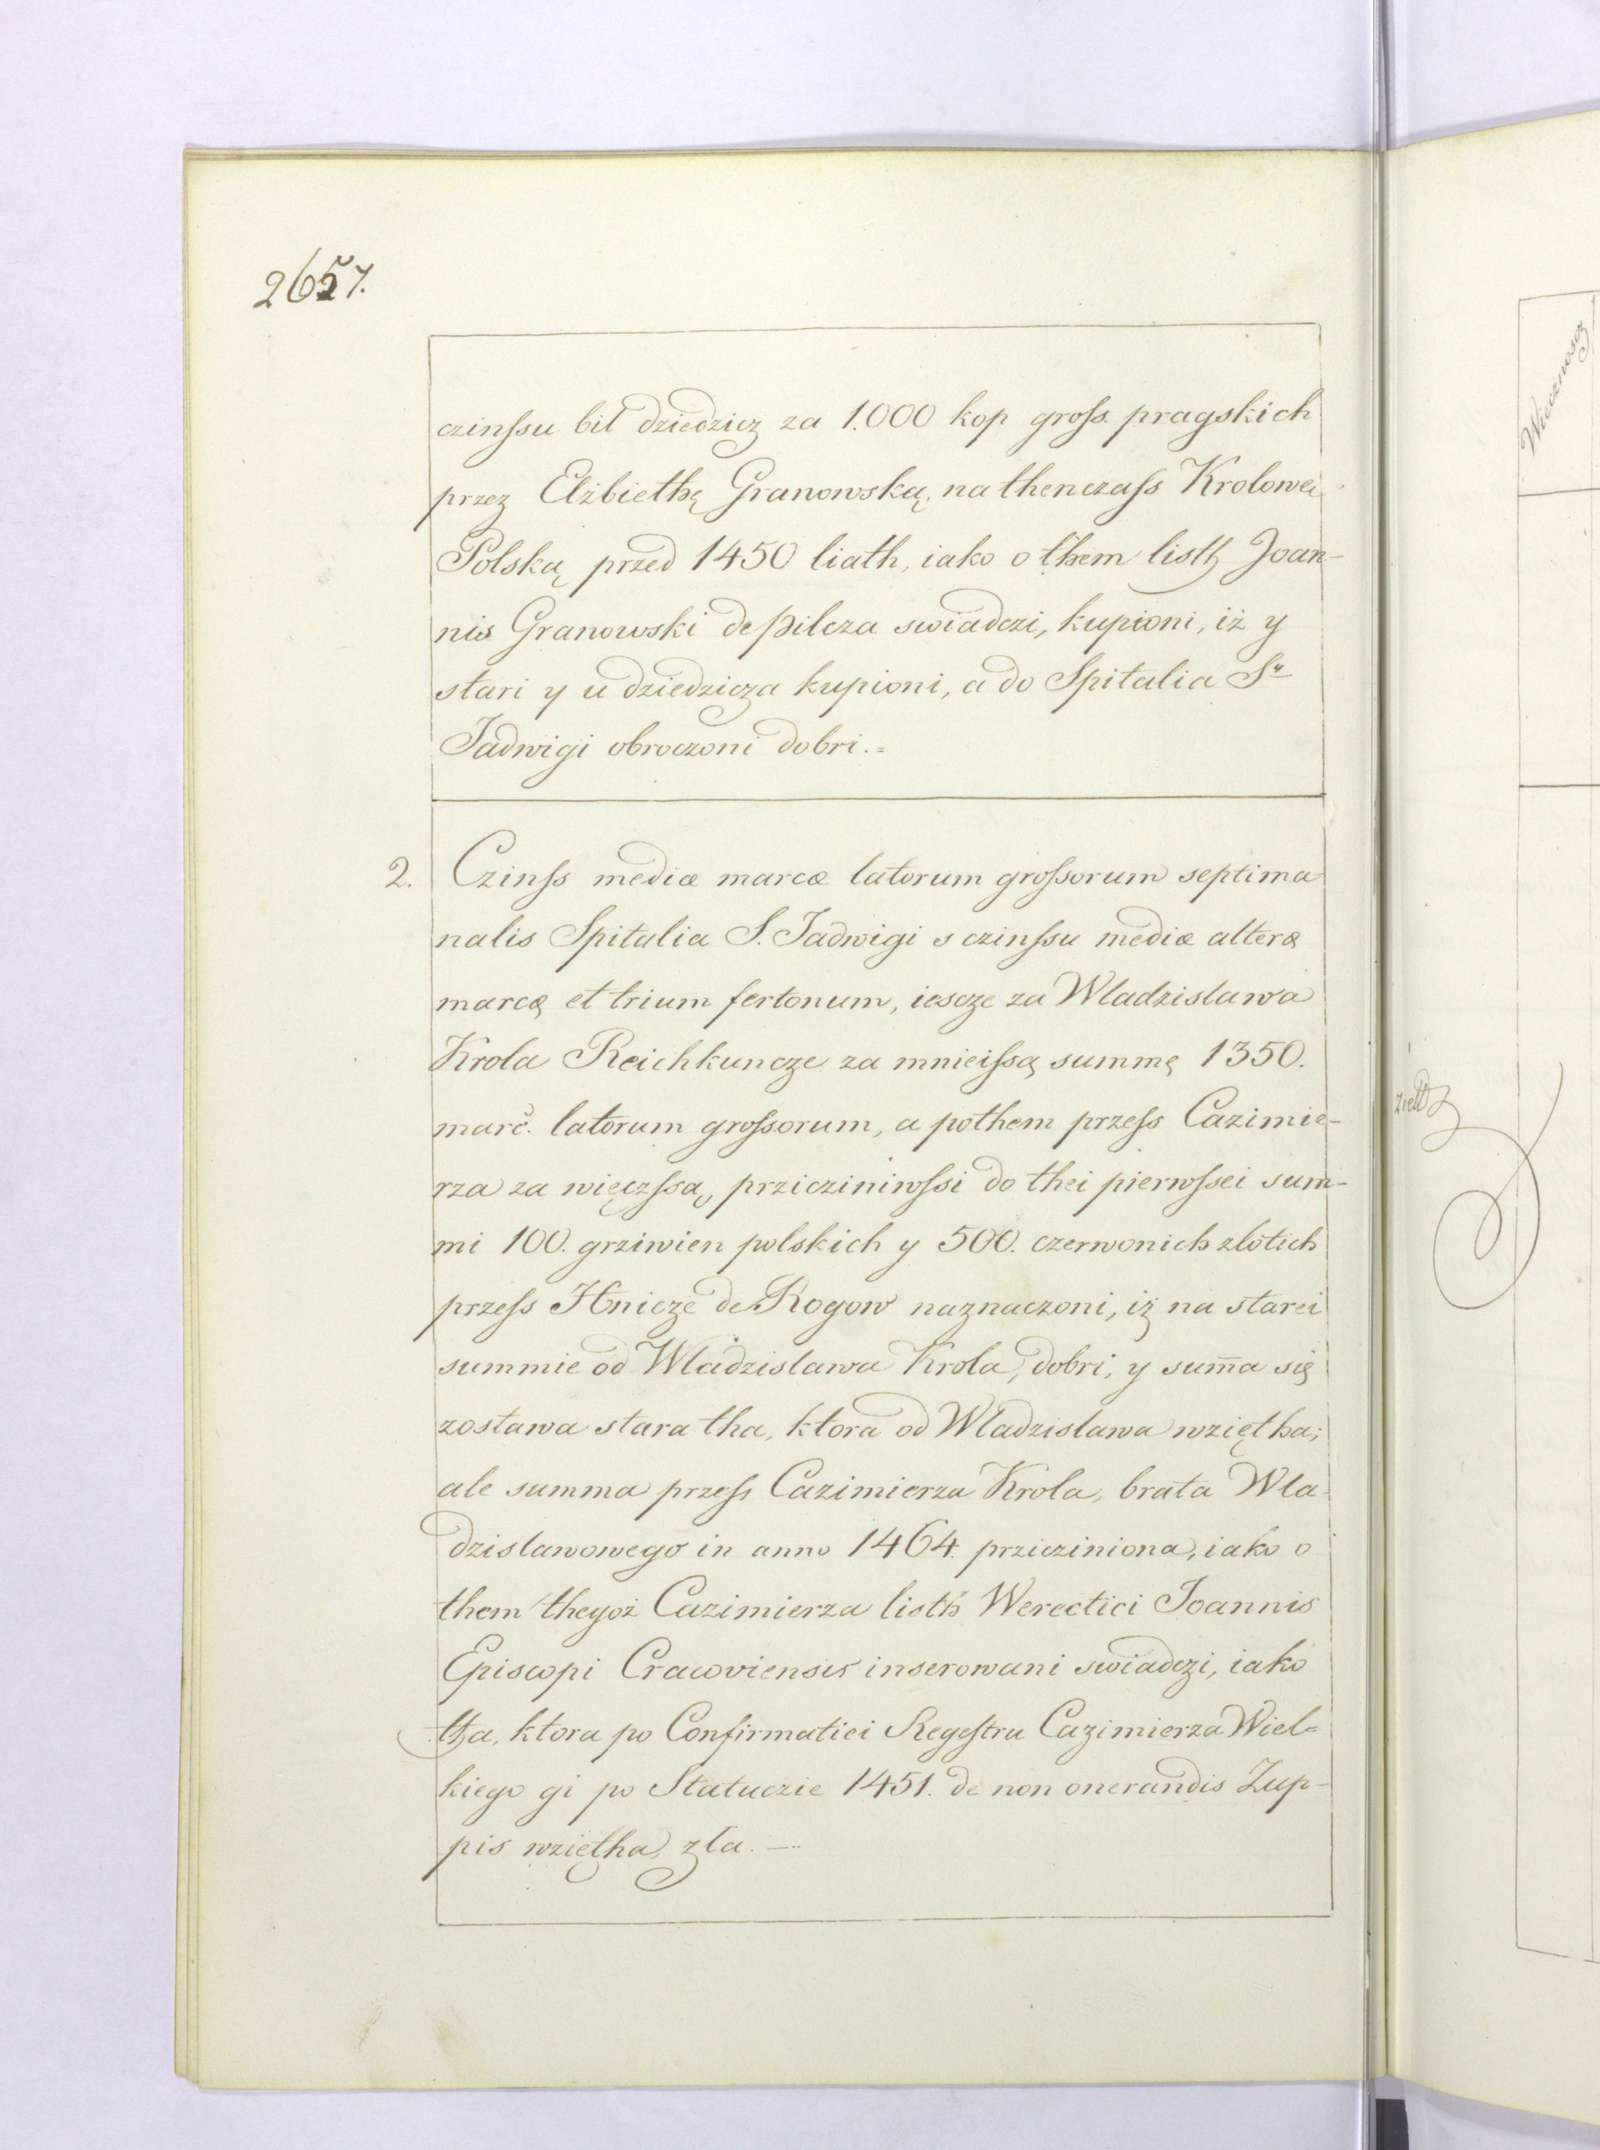 2657.
czinssu bil dziedzicz za 1.000 kop gross. pragskich
przez Elżbiethę Granowską, na thenczass Krolowę
Polską, przed 1450 liath, iako o them listh Joan-
nis Granowski de Pilcza swiadczi, kupioni, iż y
stari y u dziedzicza kupioni, a do Spitalia S.
Jadwigi obroczoni dobri. =
2. Czinss mediæ marcæ latorum grossorum septima
nalis Spitalia S. Jadwigi s czinssu mediæ alteræ
marcę et trium fertonum, iescze za Wladzislawa
Krola Reichkuncze za mnieissą summę 1350.
marc. latorum grossorum, a pothem przess Cazimie-
rza za więczssą, przicziniwssi do thei pierwssei sum-
mi 100. grziwien polskich y 500. czerwonich zlotich
przess Hnicze de Rogow naznaczoni, iż na starei
summie od Wladzislawa Krola, dobri, y sum̄a się
zostawa stara tha, ktora od Wladzislawa wziętha;
ale summa przess Cazimierza Krola, brata Wla-
dzislawowego in anno 1464. przicziniona, iako o
them thegoż Cazimierza listh Werectici Joannis
Episcopi Cracoviensis inserowani swiadczi, iako
tha, ktora po Confirmatiei Regestru Cazimierza Wiel=
kiego gi po Statuczie 1451. de non onerandis Zup-
pis wziętha, zła. —
Wieczność